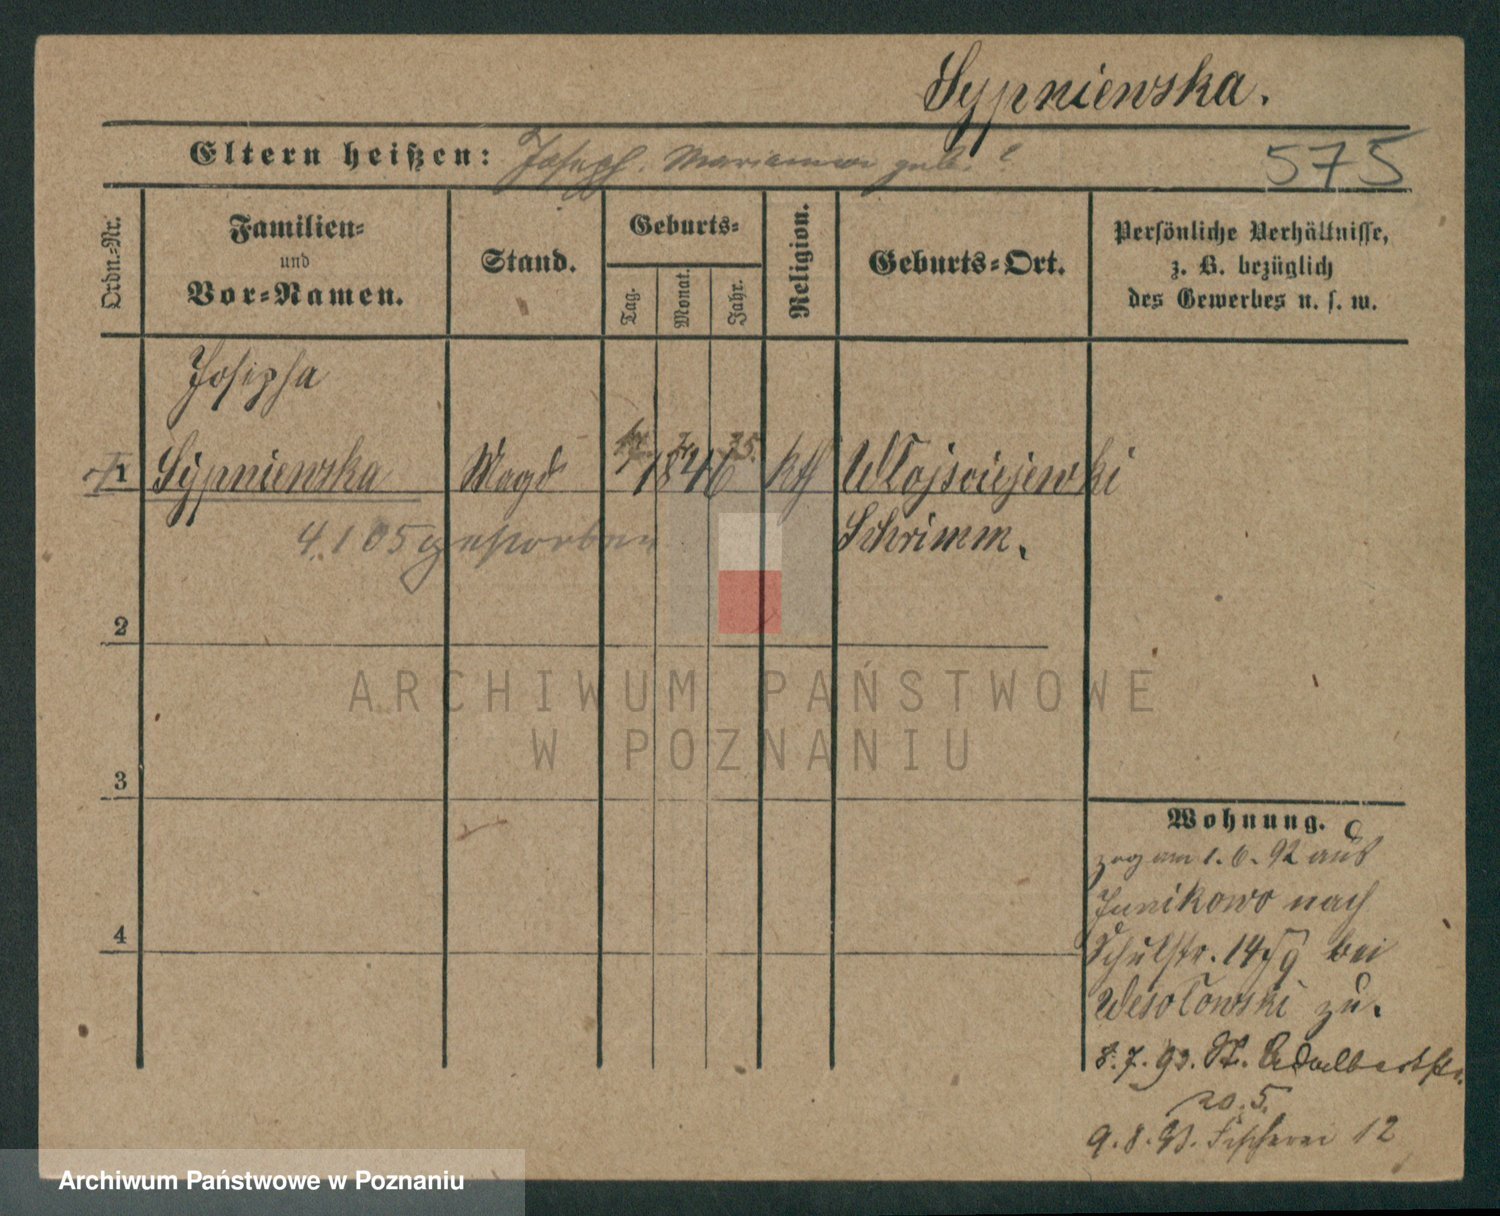 Sypniewska.
Eltern heißen: Joseph. Marianna geb. ?
575
Ordn.-Nr.
Familien-
und
Vor-Namen.
Stand.
Geburts-
Tag.
Monat.
Jahr.
Religion.
Geburts-Ort.
Persönliche Verhältnisse,
z. B. bezüglich
des Gewerbes u. s. w.
Josepha
1 Sypniewska Magd 1846 kth Wlojsciejewki
4.1 05 gestorben Schrimm.
2
3
4
Wohnung.
zog am 1. 6. 92 aus
Junikowo nach
Schulstr. 14 bei
Wesolowski zu.
8. 7. 93. St. Adalbertstr.
no. 5.
9. 8. 93. Fischerei 12
ARCHIWUM PAŃSTWOWE
W POZNANIU
Archiwum Państwowe w Poznaniu